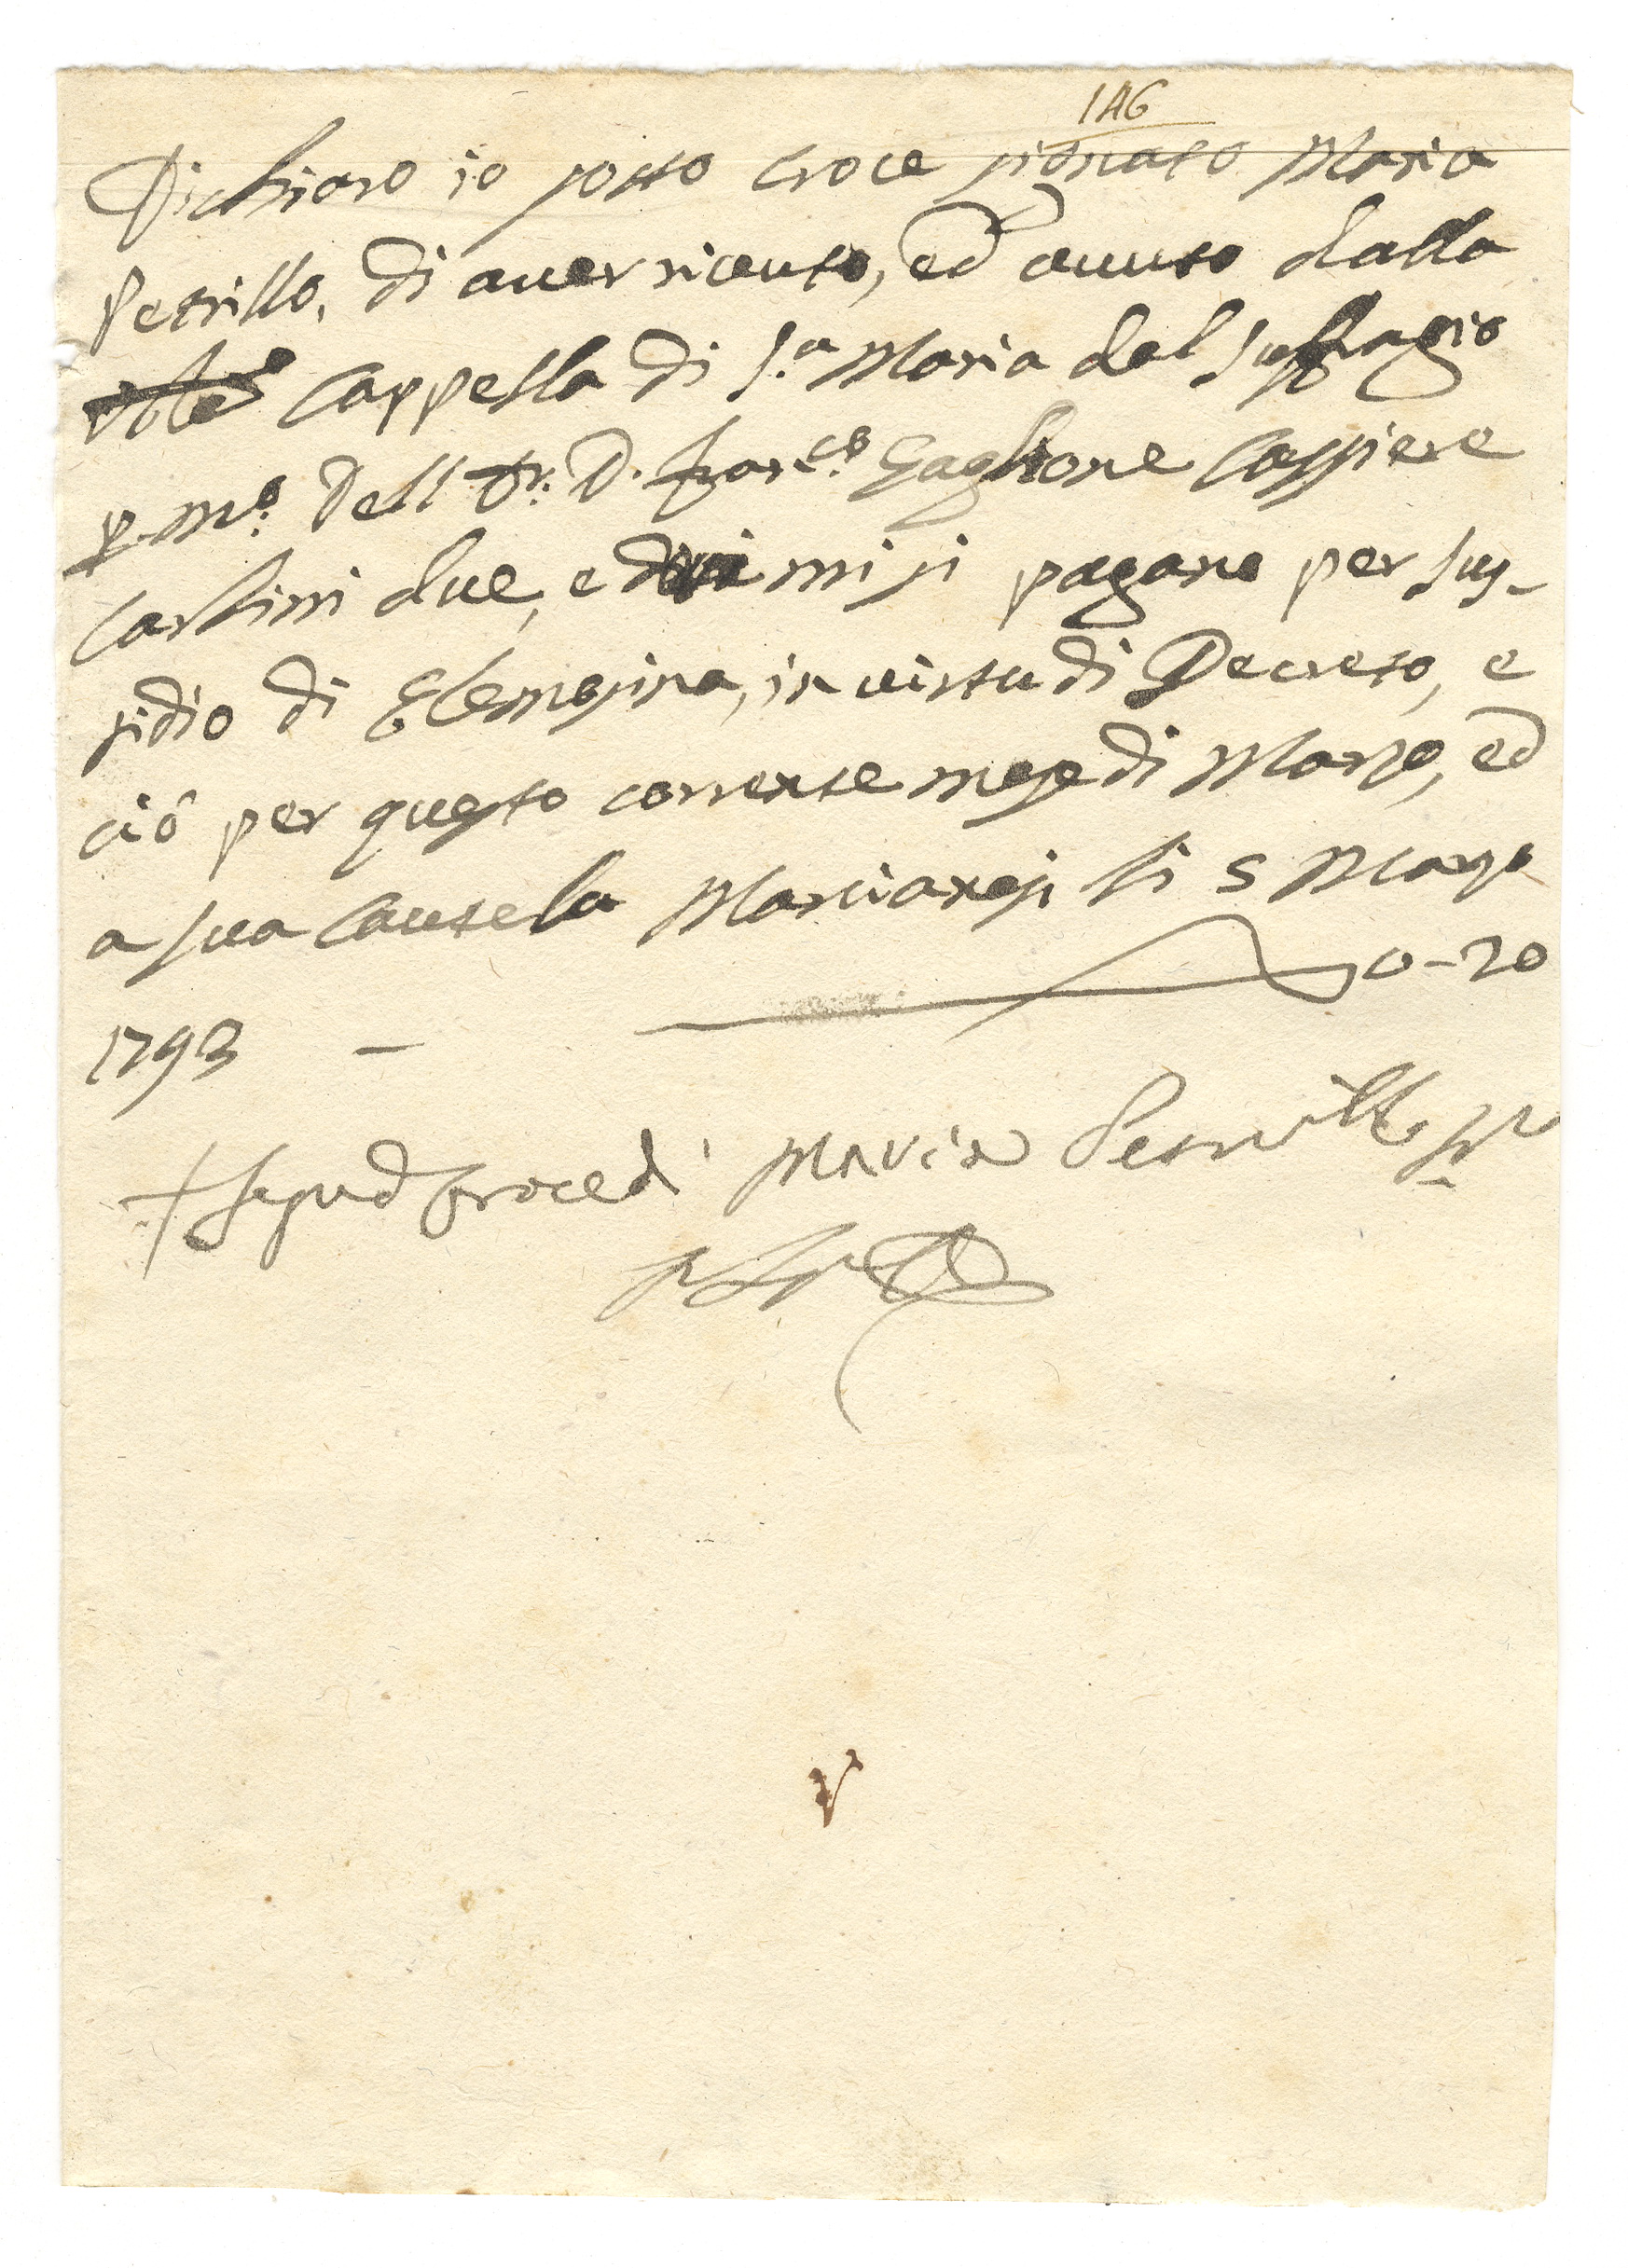 146
Dichiaro io sotto croce signato Maria
Petrillo, di aver riceuto, ed auuto dalla
Cappella di S.a Maria del Suffragio
p m.o dell Dr. D. Fran.co Gaglione Cassiere
Carlini due, e mi si pagano per sus-
sidio di Elemosina, in virtu di Decreto, e
ciò per questo corrente mese di Marzo, ed
a sua cautela Marcianesi li 5 Marzo
1793 — 0-20
+ Segno d croce di Maria Petrillo